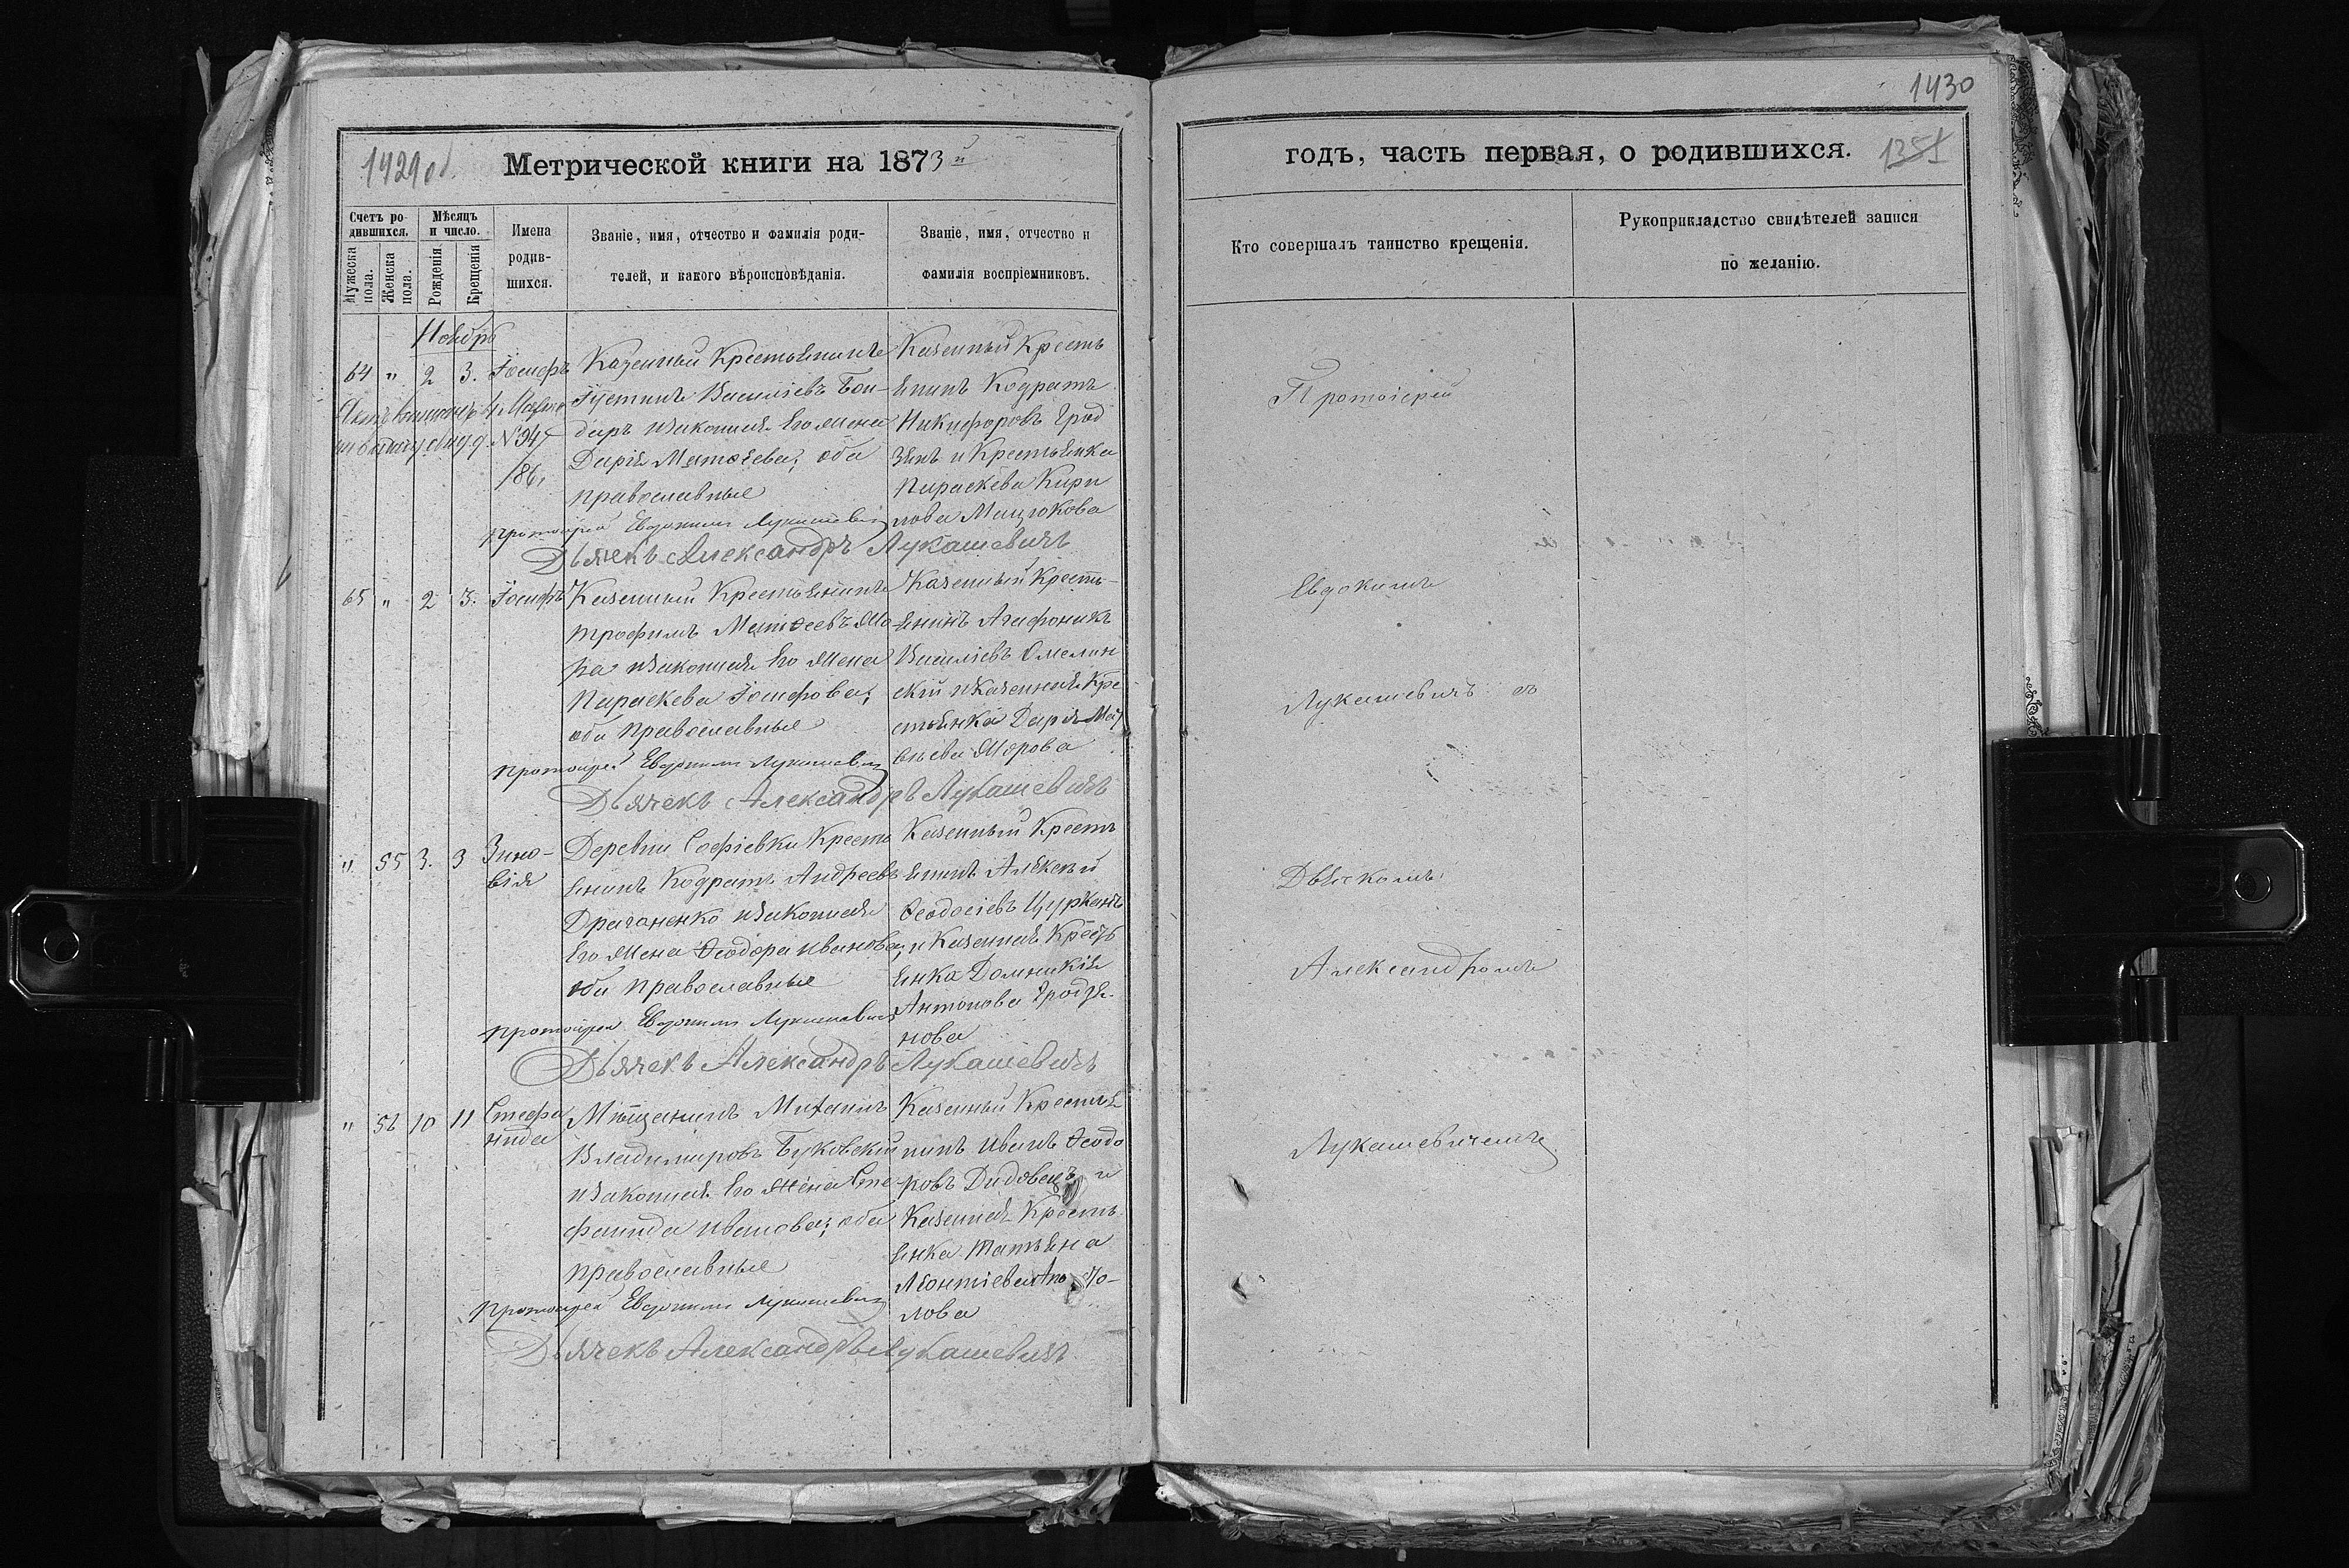 1430
1429 об.
Метрической книги на 1873 й
годъ, часть первая, о родившихся.
1351
Счетъ ро-
дившихся.
Мужеска
пола.
Женска
пола.
Мѣсяцъ
и число.
Рожденія
Крещенія
Имена
родив-
шихся.
Званіе, имя, отчество и фамилія роди-
телей, и какого вѣроисповѣданія.
Званіе, имя, отчество и
фамилія воспріемниковъ.
Кто совершалъ таинство крещенія.
Рукоприкладство свидѣтелей записи
по желанію.
Ноябрь
64 " 2 3. Іосифъ
№ 94
186
Казенный Крестьянинъ
Іустинъ Василіевъ Бон-
даръ и законная Его жена
Дарія Матѳеева; оба
православные
Казенный Кресть
янинъ Кодратъ
Никифоровъ Грод
зянъ и Крестьянка
Параскева Кири
лова Мацюкова
Протоіерей Евдокимъ Лукашевичъ
Дьячекъ Александръ Лукашевичъ
65 " 2 3. Іосифъ
Казенный Крестьянинъ
Трофимъ Матѳеевъ Мо
ра и законная Его жена
Параскева Іосифова;
оба православные
Казенный Кресть-
янинъ Агафоникъ
Василіевъ Омелян
скій и Казенная Кре
стьянка Дарія Мат
вѣева Морова
Протоіерей Евдокимъ Лукашевичъ
Дьячекъ Александръ Лукашевичъ
" 55 3. 3 Зино-
вія
Деревни Софіевки Кресть
янинъ Кодратъ Андреевъ
Драганенко и законная
Его жена Ѳеодора Иванова;
оба православные
Казенный Кресть
янинъ Алексѣй
Ѳеодосіевъ Цурканъ
и Казенная Кресть
янка Домникія
Антонова Гродзя-
нова
Протоіерей Евдокимъ Лукашевичъ
Дьячекъ Александръ Лукашевичъ
" 56 10 11 Стефа
нида
Мѣщанинъ Михаилъ
Владимировъ Буковскій
и законная Его жена Сте-
фанида Иванова; оба
православные
Казенный Крестья
нинъ Иванъ Ѳеодо
ровъ Дидовецъ и
Казенная Кресть
янка Татьяна
Леонтіева
лова
Протоіерей Евдокимъ Лукашевичъ
Дьячекъ Александръ Лукашевичъ
Протоіерей
Евдокимъ
Лукашевичъ съ
Дьячкомъ
Александромъ
Лукашевичемъ